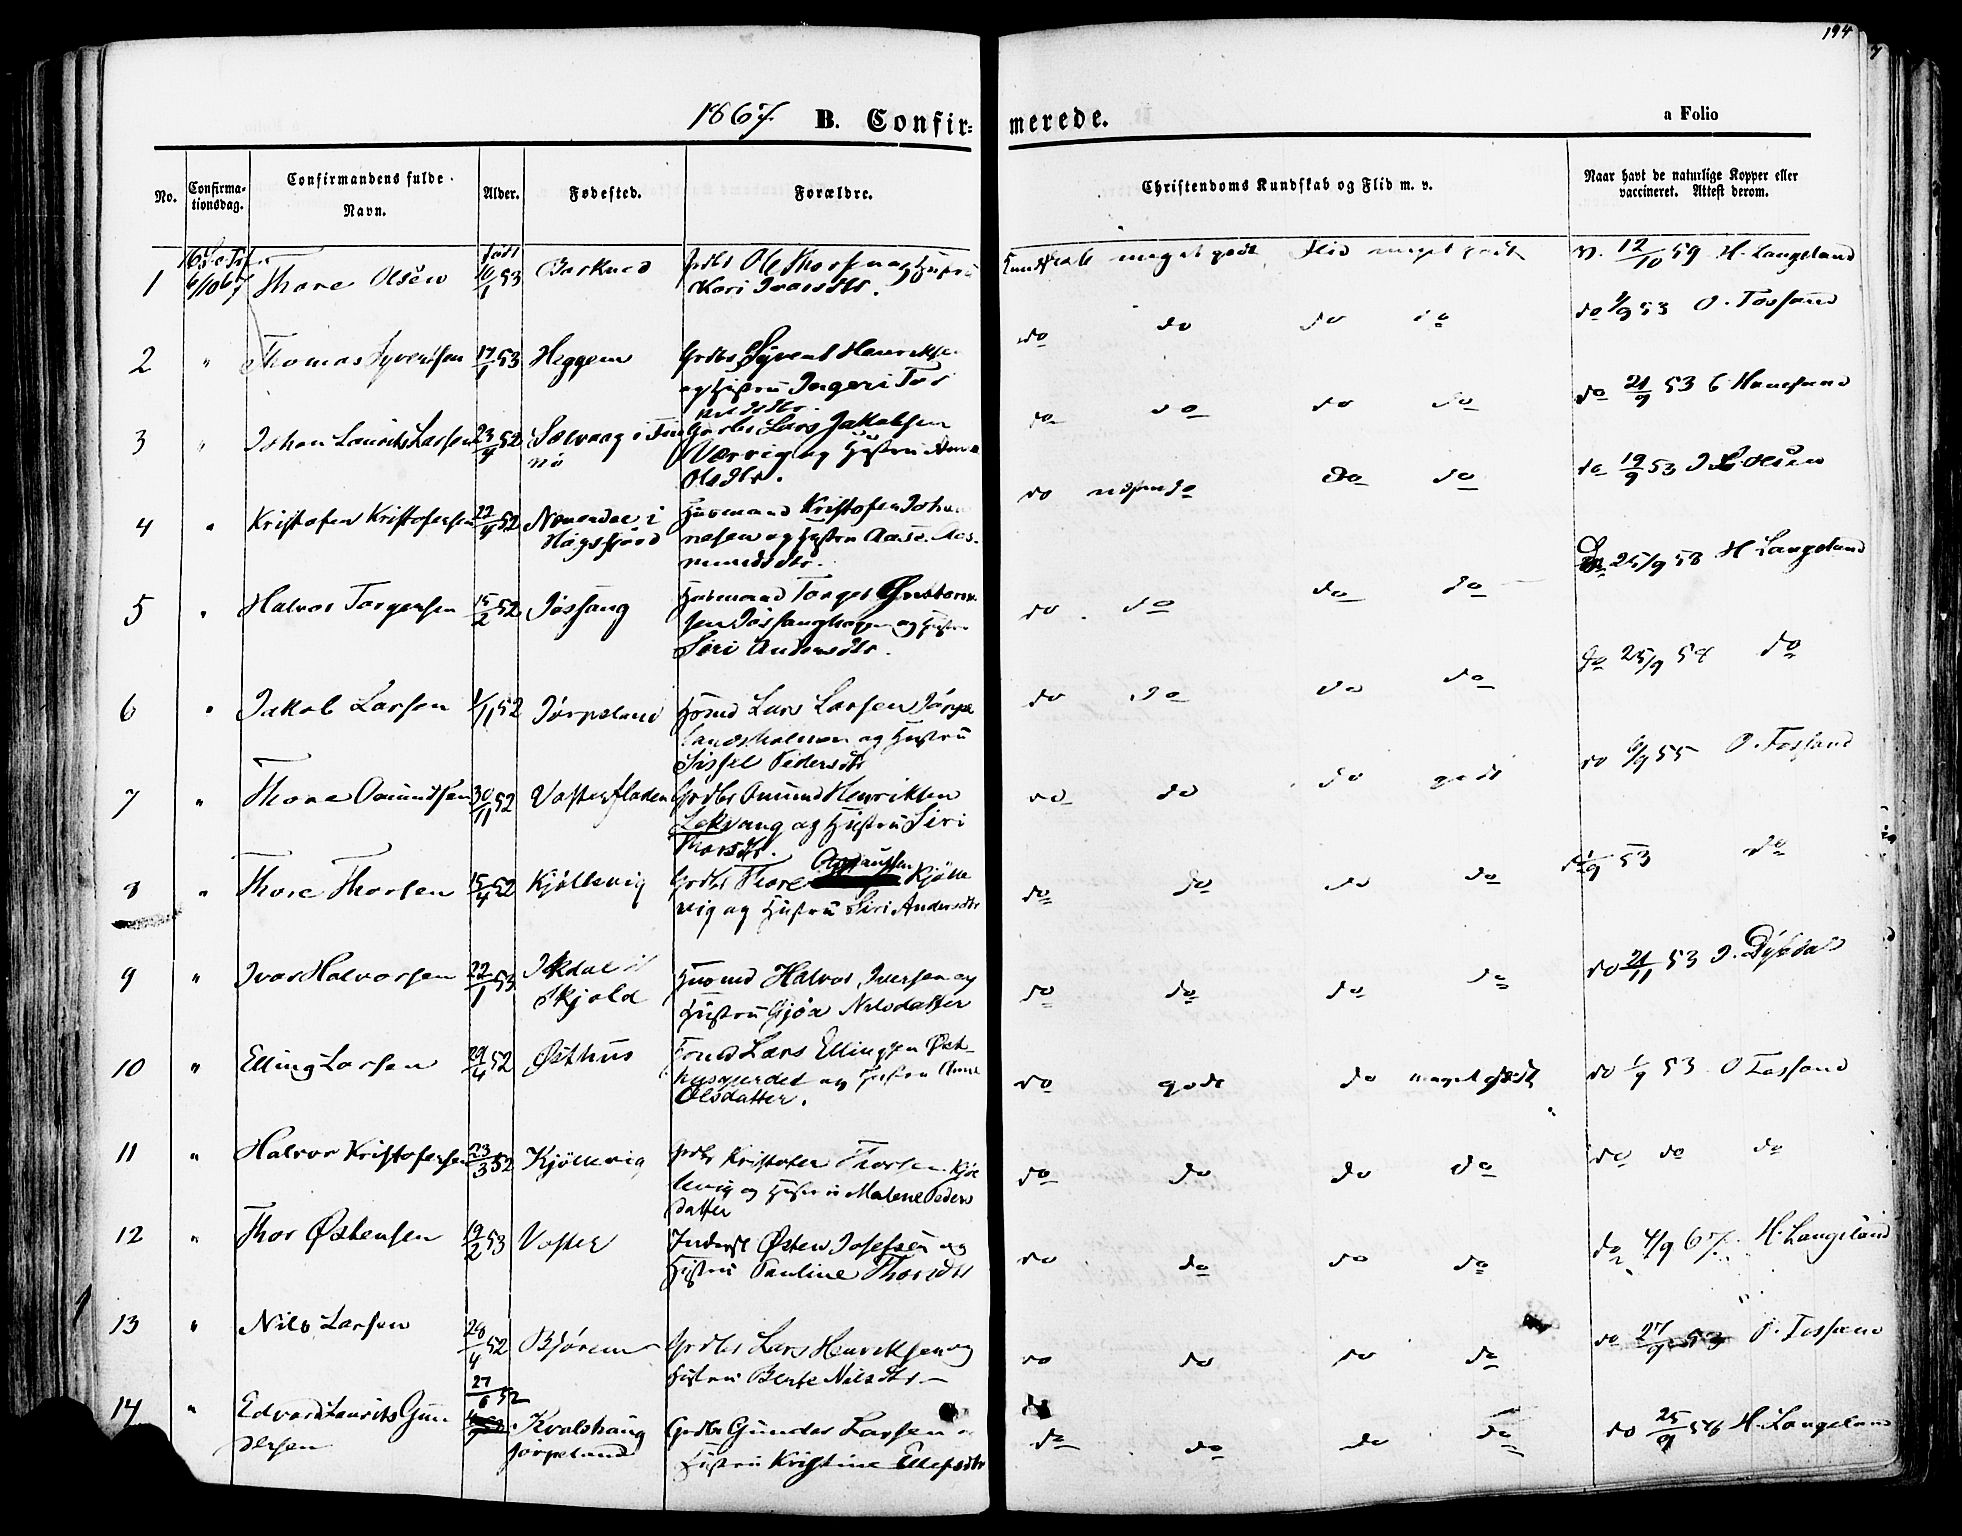 194
1867. B. Confirmerede. a Folio
No. Confirmationsdag. Confirmandens fulde Navn. Alder. Fødested. Forældre. Christendoms Kundskab og Flid m. v. Naar havt de naturlige Kopper eller vaccineret. Attest derom.
1 6/10 67 Thore Olsen født 16/1 53 Barkved Grdbr Ole Thorsen og Hustru
Kari Ivarsdtr. Kundskab meget godt Flid meget godt v. 12/10 59 H. Langeland
2 " Thomas Syvertsen 17/1 53 Heggem Grdbr Syvert Henriksen
og Hustru Ingeri Tor
do do do do do 53 O. Tossand
3 " Johan Laurits Larsen 23/9 52 Solvaag i Fin
nø Lars Jakobsen
og Hustru Anna
Olsdtr. do do do do do 21/9 53
4 " Kristofer Kristofersen 22/9 52 i
Høgsfjord Huusmand Kristofer Johan
nesen og Hustru Aase Aas
mundsdtr. do do do do 19/9 53 Olsen
5 " Halvor Torgersen 15/2 52 Jøssang Huusmand Torger
sen Jøssanghagen og Hustru
Siri Andersdtr. do do do do 25/9 58 H Langeland
6 " Jakob Larsen 1/11 52 Jørpeland Lars Larsen Jørpe
landsholmen og Hustru
Sissel Pedersdtr do do do do do 25/9 54 do
7 " Thore Omundsen 30/11 52 Vosterfladen Grdbr Omund Henriksen
Lekvang og Hustru Siri
Thorsdtr. do do do godt do 6/9 55 O. Tossand
8 " Thore Thorsen 15/4 52 Kjøllevig Grdbr Thore Kjølle
vig og Hustru Siri Andersdtr do do do do 53 do
9 " Ivar Halvorsen 22/1 53
Skjold Halvor Iversen og
Hustru Gjøa Nilsdatter do do do do do 21/11 53
10 " Elling Larsen 29/4 52 Østhus Lars Ellingsen Øst-
husgjerdet og Hustru Anna
Olsdatter. do godt do meget godt do 1/9 53 O Tossand
11 " Halvor Kristofersen 23/3 52 Kjøllevig Grdbr Kristofer Thorsen Kjøl
levig og Hustru Malene Peders
datter do do do do do do do
12 " Thor Østensen 19/2 53 Voster Inderst Østen Josefsen og
Hustru Pauline Thorsdtr do do do do do 4/9 67. H. Langeland
13 " Nils Larsen 28/4 52 Bjørem Grdbr Lars Henriksen og
Hustru Berte Nilsdtr. do do do do do 27/9 53 O. Tossand
14 " Edvard Laurits Gun
dersen 27/6 52 Kvalshaug
Jørpeland Grdbr Gunder Larsen
Hustru Kristine Ellefsdtr do do do do do 25/9 56 H. Langeland